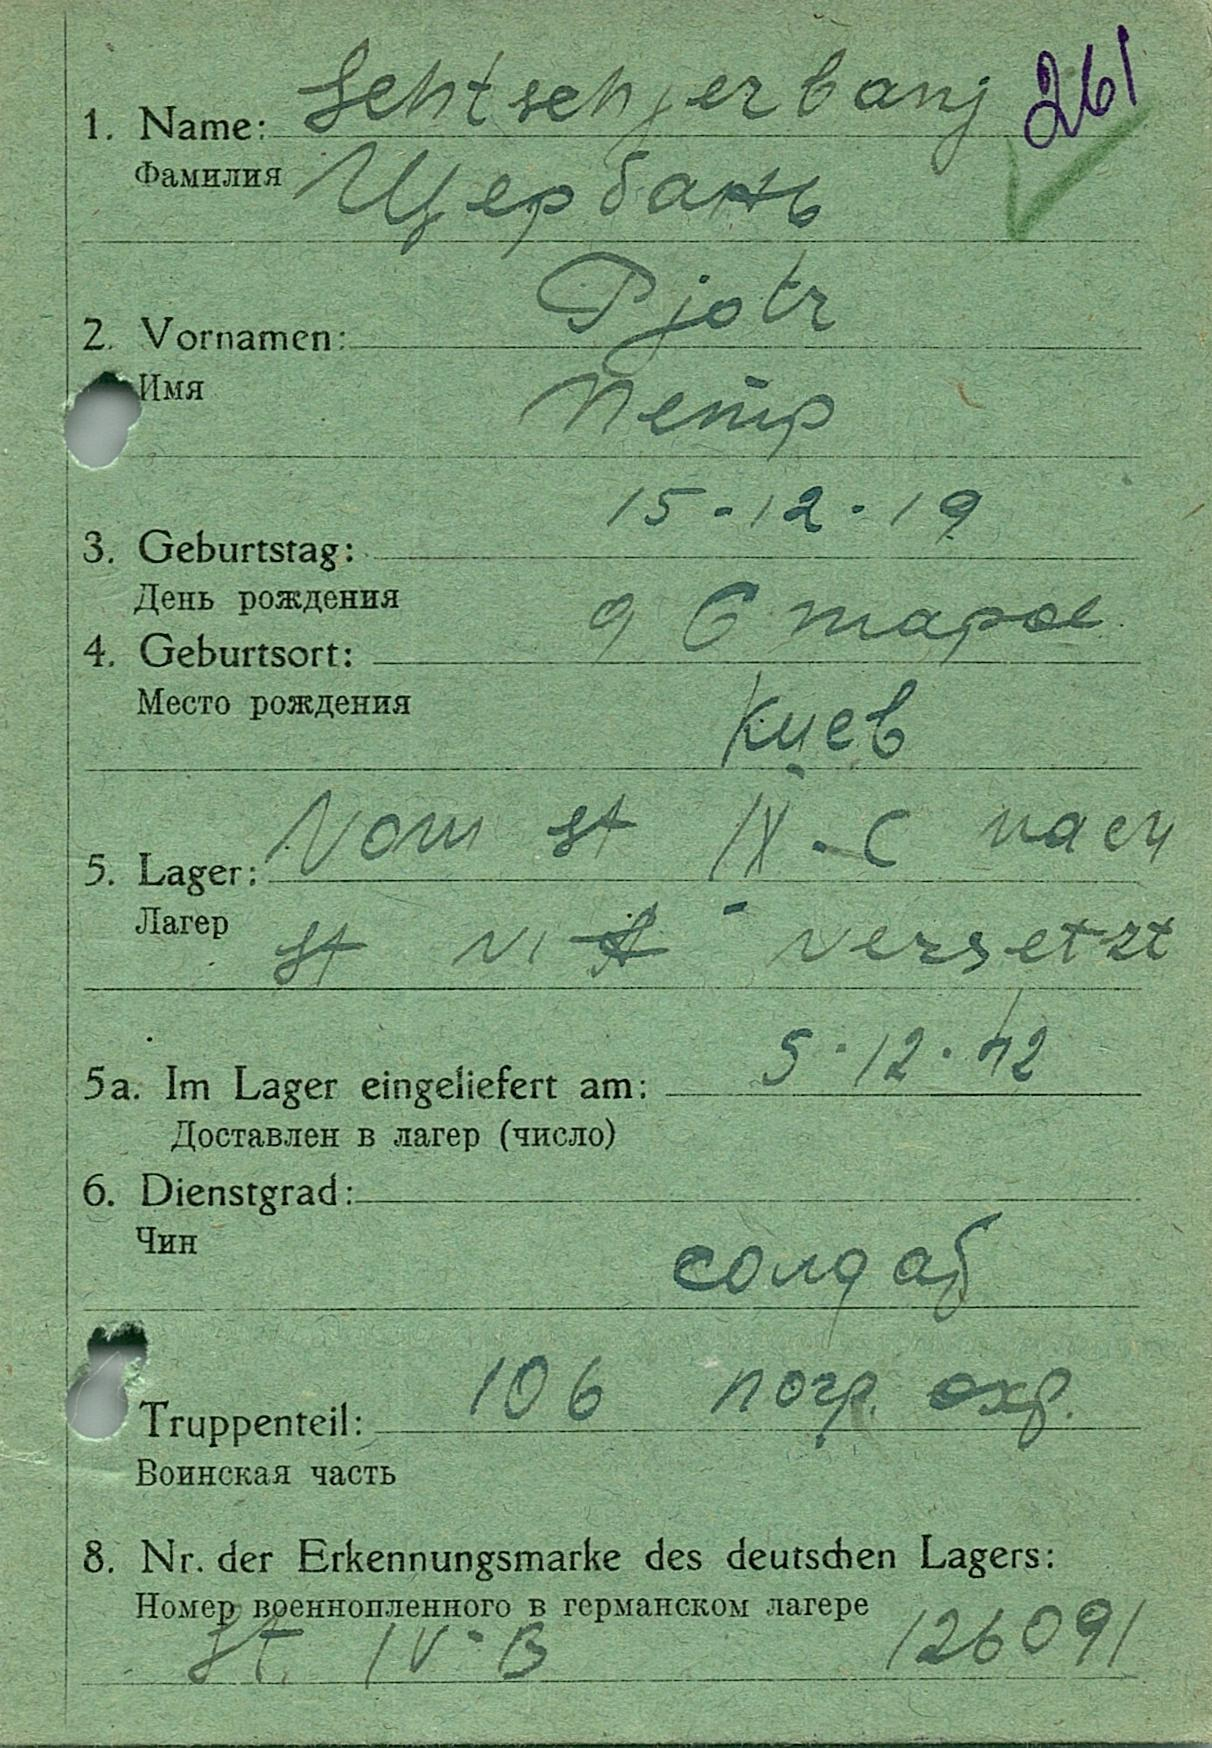 261
1. Name: Schtschjerbanj
Фамилия Щербань
2. Vornamen: Pjotr
Имя Петр
15-12-19
3. Geburtstag:
День рождения
4. Geburtsort:
Место рождения
Киев
5. Lager: Vom St IX-C nach
Лагер
St VI A versetzt
5a. Im Lager eingeliefert am: 5.12.42
Доставлен в лагер (число)
6. Dienstgrad:
Чин
солдат
Truppenteil: 106 погр. охр.
Воинская часть
8. Nr. der Erkennungsmarke des deutschen Lagers:
Номер военнопленного в германском лагере
St. IV-B 126091